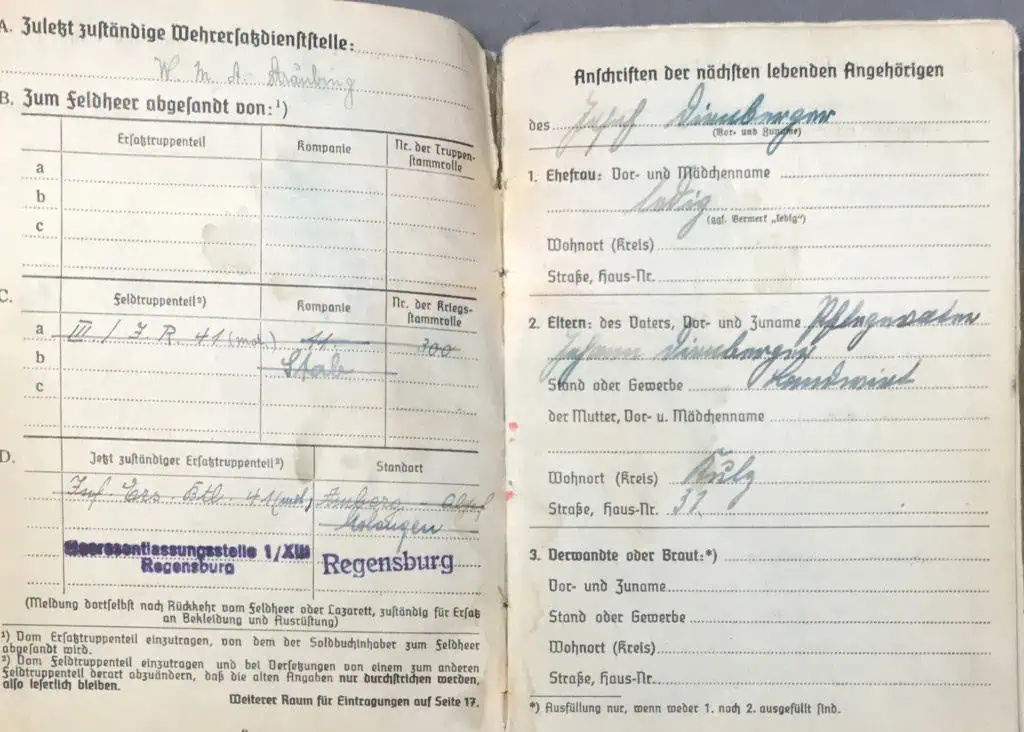 A. Zuletzt zuständige Wehrersatzdienststelle:
W. M. A. Straubing
B. Zum Feldheer abgesandt von:¹)
Ersatztruppenteil
Kompanie
Nr. der Truppen-
stammrolle
a
b
c
C.
Feldtruppenteil²)
Kompanie
Nr. der Kriegs-
stammrolle
a III / I. R. 41 (mot.) 11. 300
b Stab
c
D.
Jetzt zuständiger Ersatztruppenteil²)
Standort
Inf. Ers. Btl. 41 (mot) Amberg
Heeresentlassungsstelle 1/XIII
Regensburg
Regensburg
(Meldung dortselbst nach Rückkehr vom Feldheer oder Lazarett, zuständig für Ersatz
an Bekleidung und Ausrüstung)
¹) Vom Ersatztruppenteil einzutragen, von dem der Soldbuchinhaber zum Feldheer
abgesandt wird.
²) Vom Feldtruppenteil einzutragen und bei Versetzungen von einem zum anderen
Feldtruppenteil derart abzuändern, daß die alten Angaben nur durchstrichen werden,
also leserlich bleiben.
Weiterer Raum für Eintragungen auf Seite 17.
Anschriften der nächsten lebenden Angehörigen
des Josef Dirnberger
(Vor- und Zuname)
1. Ehefrau: Vor- und Mädchenname
ledig
(ggf. Vermerk „ledig“)
Wohnort (Kreis)
Straße, Haus-Nr.
2. Eltern: des Vaters, Vor- und Zuname Pflegevater
Johann Dirnberger
Stand oder Gewerbe Landwirt
der Mutter, Vor- u. Mädchenname
Wohnort (Kreis) Kulz
Straße, Haus-Nr.
3. Verwandte oder Braut:*)
Vor- und Zuname
Stand oder Gewerbe
Wohnort (Kreis)
Straße, Haus-Nr.
*) Ausfüllung nur, wenn weder 1. noch 2. ausgefüllt sind.